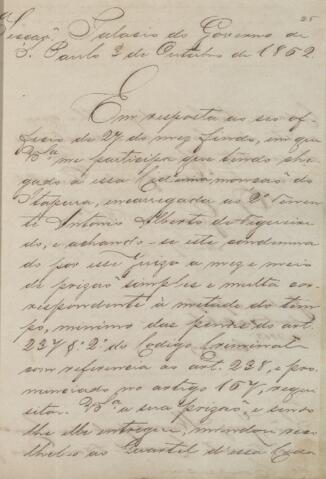 25
Palacio do Governo de
S. Paulo 3 de Outubro de 1862.
Em resposta ao seo of-
ficio de 27 do mez findo, em que
V.Sª me participa que tendo che
gado a essa Cidade uma monção do
Itapura, encarregada ao 2º Tenen
te Antonio Alberto de Figueire
do, e achando-se este condemna
do por esse Juizo a mez e meio
de prizão simples e multa cor-
respondente á metade do tem
po, minimo das penas do art.
237 § 2º do Codigo Criminal
com referencia ao art. 238, e pro-
nunciado no artigo 167, requi
sitou V.Sª a sua prizão, e sendo
lhe elle entregue, mandou reco
lhel-o ao Quartel d'essa